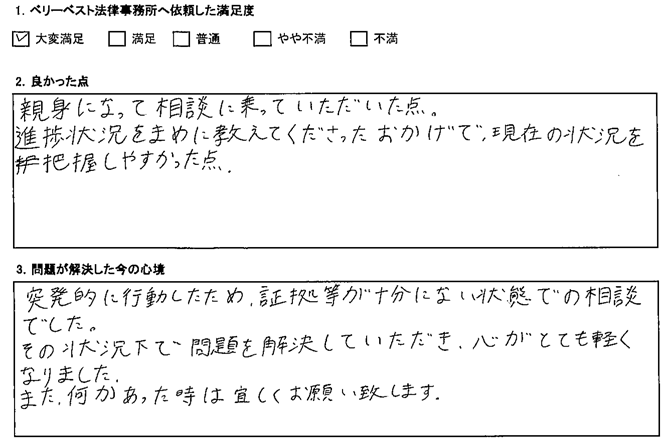 1. ベリーベスト法律事務所へ依頼した満足度
☑ 大変満足 □ 満足 □ 普通 □ やや不満 □ 不満
2. 良かった点
親身になって相談に乗っていただいた点。
進捗状況をまめに教えてくださったおかげで、現在の状況を
把握しやすかった点。
3. 問題が解決した今の心境
突発的に行動したため、証拠等が十分にない状態での相談
でした。
その状況下で問題を解決していただき、心がとても軽く
なりました。
また、何かあった時は宜しくお願い致します。